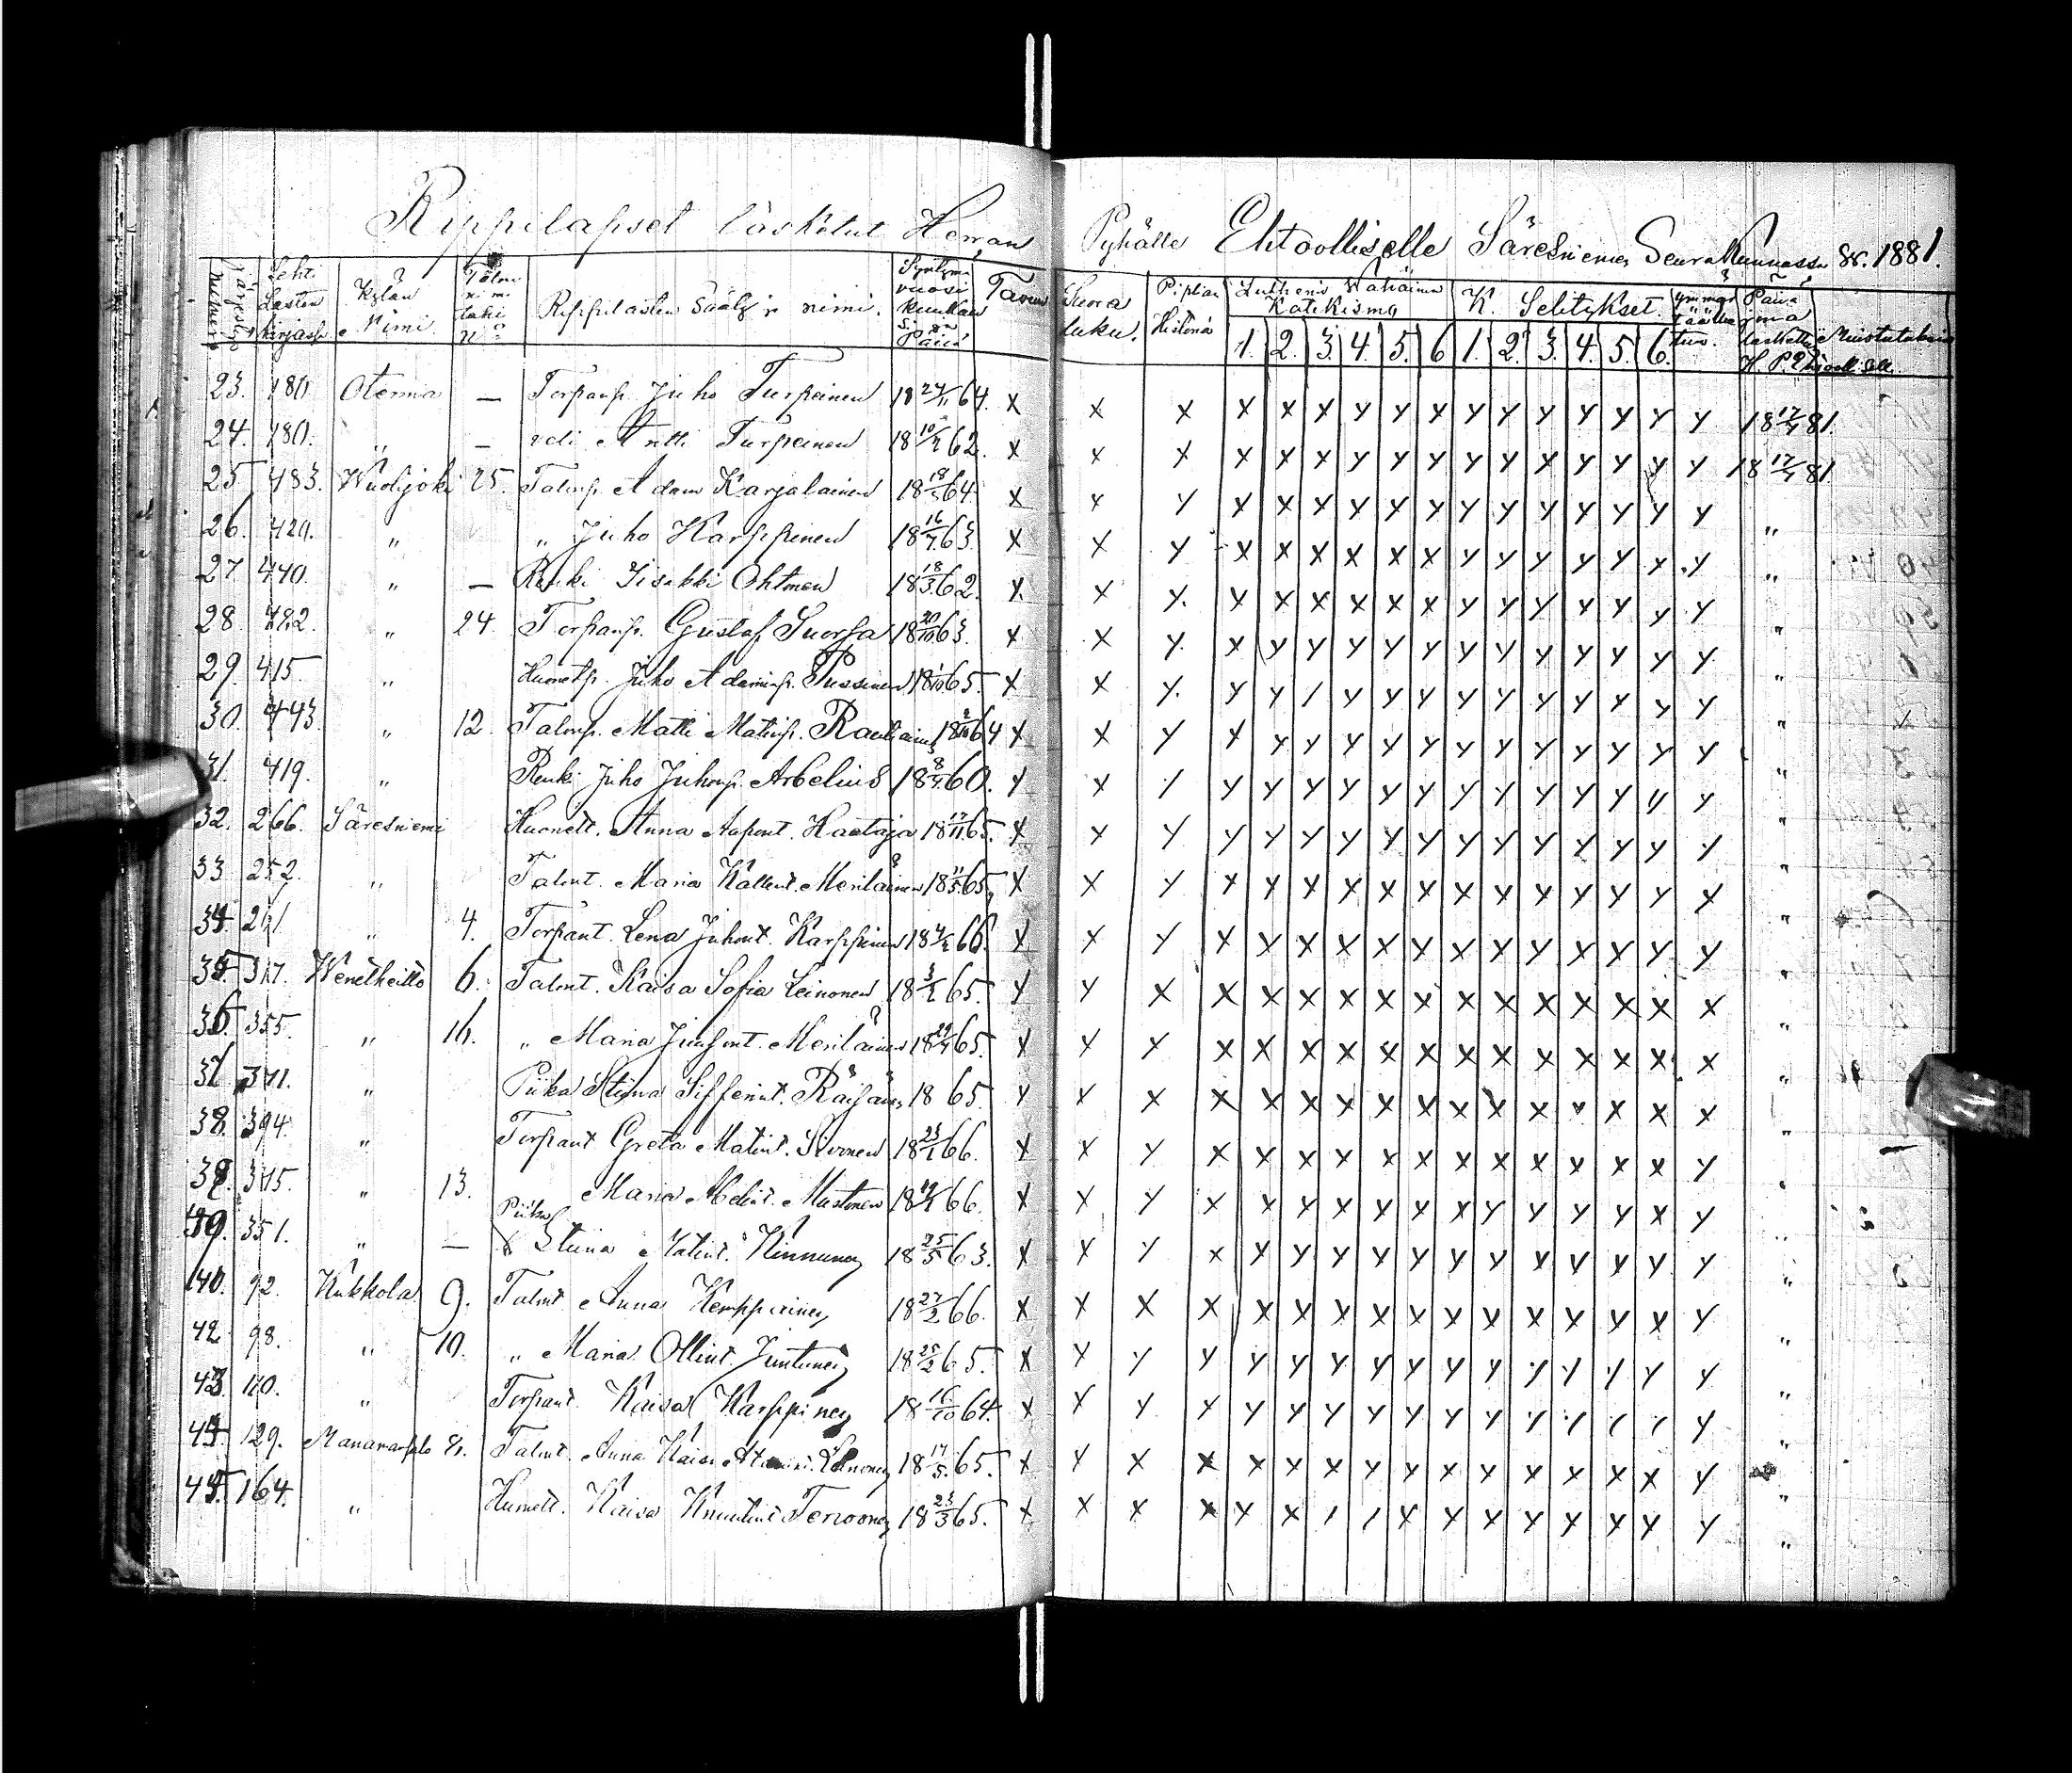 Rippilapset lasketut Herran Pyhälle Ehtoolliselle Säresniemen Seurakunnassa v. 1881.
Järjestys Numero Lehti Lasten kirjassa Kylän Nimi. Talon nimi tahi No Rippilasten Sääty ja nimi. Syntymä vuosi kuukausi ja Päivä Tavuu Suora luku. Piplian Historia Lutheruxen Wähäinen Katekismo K. Selitykset. Ymmärtäväisyys Päivä jona laskettu H. P. Ehtoolliselle Muistutuksia
1. 2. 3. 4. 5. 6 1. 2. 3. 4. 5. 6.
23. 180. Otermo — Torpanp. Juho Turpeinen 18 24/11 64. x x x x x x y y x y y y y y y y 18 17/4 81.
24. 180. „ — veli Antti Turpeinen 18 10/2 62. x x x x x x y y y y y x y y y y 18 17/4 81
25 483. Wuolijoki 25. Talonp. Adam Karjalainen 18 18/5 64. x x y x x x x x x y y y y y y y „
26. 420. „ „ Juho Karppinen 18 16/7 63. x x y x x x x x x y y y y y x y „
27 440. „ — Renki Iisakki Ohtonen 18 18/3 62. x x y. x x x x x x y y y y y y y „
28. 482. „ 24. Torpanp. Gustaf Suorsa 18 20/10 63. x x y. x y y y y y y y y y y y y „
29 415 „ Huonetp. Juho Adaminp. Pussinen 18 1/10 65. x x y. y y / y y y y y y y y y y „
30. 443. „ 12. Talonp. Matti Matinp. Rautiainen 18 2/10 64 x x y x y y y y y y y y y y y y „
31. 419. „ Renki Juho Juhonp. Arbelius 18 8/4 60. y x / y y y y y y y y y y y y y „
32. 266. Säresniemi Huonett. Anna Aapont. Haataja 18 17/11 65. x x y y y y y y y y y y y y y y „
33. 252. „ Talont. Maria Kallent. Meriläinen 18 11/5 65. x x y x x x x x x x x x y y y x „
34. 261. „ 4. Torpant. Lena Juhont. Karppinen 18 4/2 66. x x y x x x x x x x x y x x y y „
35. 317. Wenetheitto 6. Talont. Kaisa Sofia Leinonen 18 3/2 65. y y x x x x x x x x x x x x x x „
36. 355. „ 16. „ Maria Juhont. Meriläinen 18 29/4 65. x x y x x x x x x x x x x x x x „
37. 371. „ Piika Stiina Sifferint. Räisänen 18 65. y x x x x x x x x x x x x x x x „
38. 394. „ Torpant. Greta Matint. Sivonen 18 23/1 66. x x y x x x x x x x x x x x x y „
38. 375. „ 13. Maria Abelint. Mustonen 18 19/1 66. x x y x x x x x x x y y y y x y „
39. 351. „ — Piika Stiina Matint. Kinnunen 18 25/5 63. x x y x y y y y y y y y y y y y „
40. 92. Kukkola 9. Talont. Anna Kemppainen 18 27/2 66. x x x x x x x x x x x x x x x y „
42. 98. „ 10. „ Maria Ollint. Juntunen 18 25/2 65. x x y y y y y y y y y y y y y y „
43. 110. „ Torpant. Kaisa Karppinen 18 16/10 64. x x y y y y y y y y y y / / / y „
129. Manamansalo 8. Talont. Anna Kaisa Leinonen 18 17/5 65. x y x x x x x y y x x x x x x y „
164. „ Huonett. Kaisa Tervonen 18 23/3 65. x x x x x x / / x x x x y x y y „